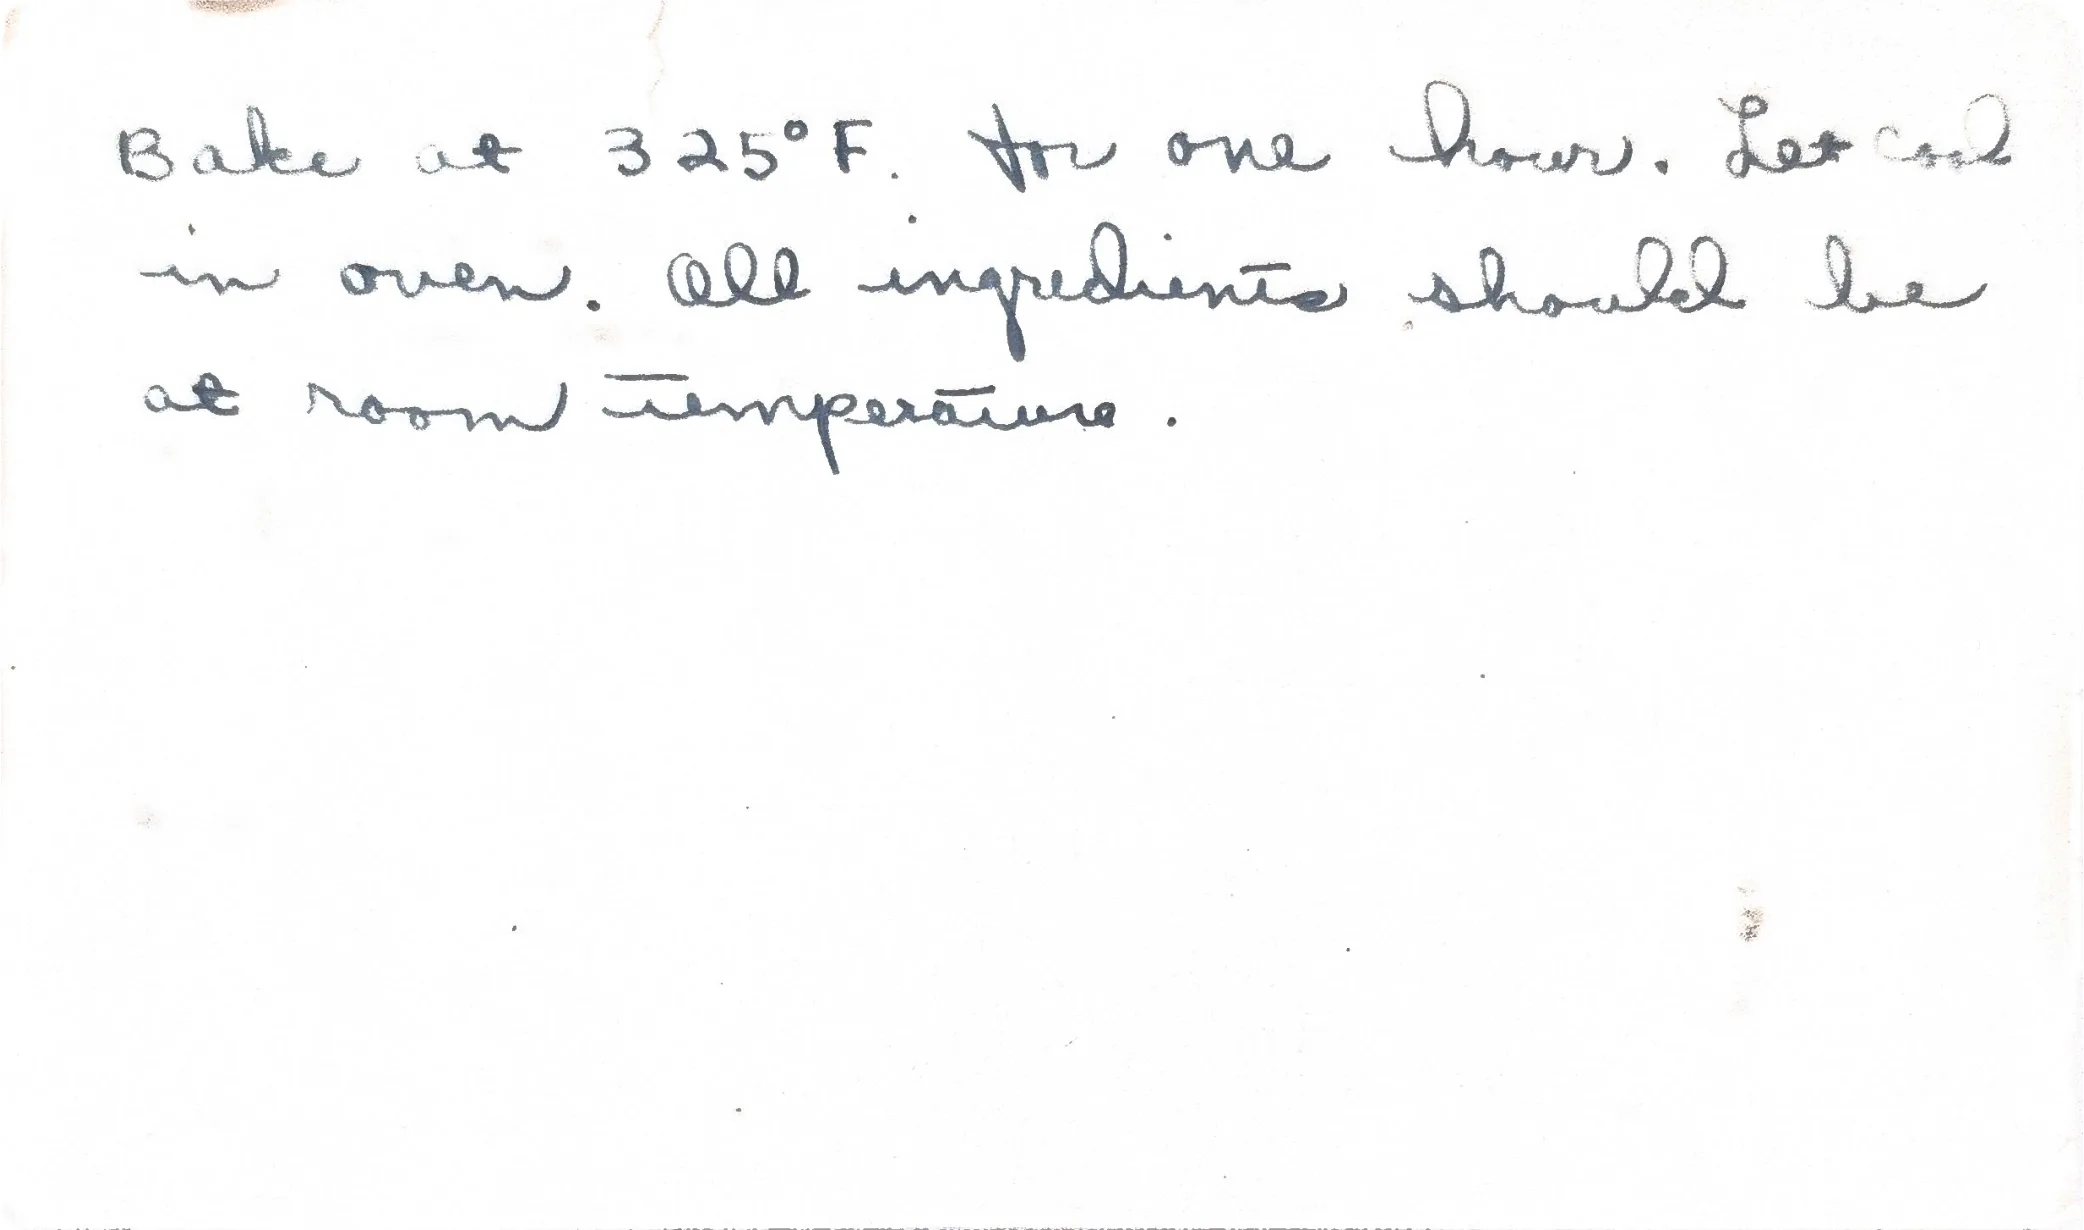 Bake at 325°F. for one hour. Let cool
in oven. All ingredients should be
at room temperature.